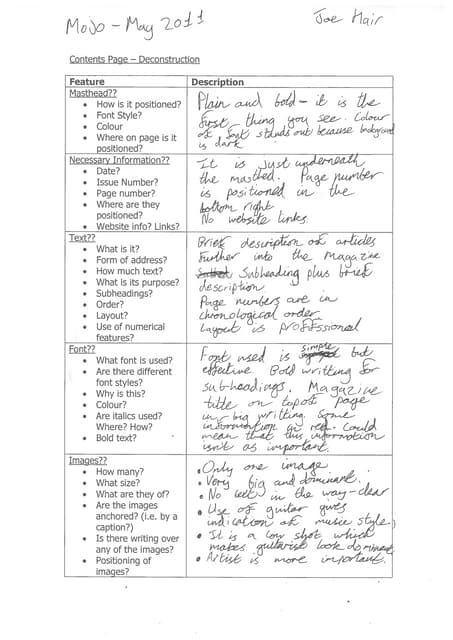 MOJO – May 2011
Joe Hair
Contents Page – Deconstruction
Feature
Description
Masthead??
• How is it positioned?
• Font Style?
• Colour
• Where on page is it
positioned?
Plain and bold – it is the
first thing you see. Colour
of font stands out because background
is dark
Necessary Information??
• Date?
• Issue Number?
• Page number?
• Where are they
positioned?
• Website info? Links?
It is just underneath
the masthead. Page number
is positioned in the
bottom right
No website links
Text??
• What is it?
• Form of address?
• How much text?
• What is its purpose?
• Subheadings?
• Order?
• Layout?
• Use of numerical
features?
Brief description of articles
further into the magazine
Subheading plus brief
description
Page numbers are in
chronological order
Layout is proffesional
Font??
• What font is used?
• Are there different
font styles?
• Why is this?
• Colour?
• Are italics used?
Where? How?
• Bold text?
Font used is simple but
effective. Bold writting for
sub-headings. Magazine
title on top of page
in big writting. Some
information in red. Could
mean that this information
isn't as important.
Images??
• How many?
• What size?
• What are they of?
• Are the images
anchored? (i.e. by a
caption?)
• Is there writing over
any of the images?
• Positioning of
images?
• Only one image
• Very big and dominant.
• No text in the way – clear
• Use of guitar gives
indication of music style.
• It is a low shot which
makes guitarist look dominant
• Artist is more important.